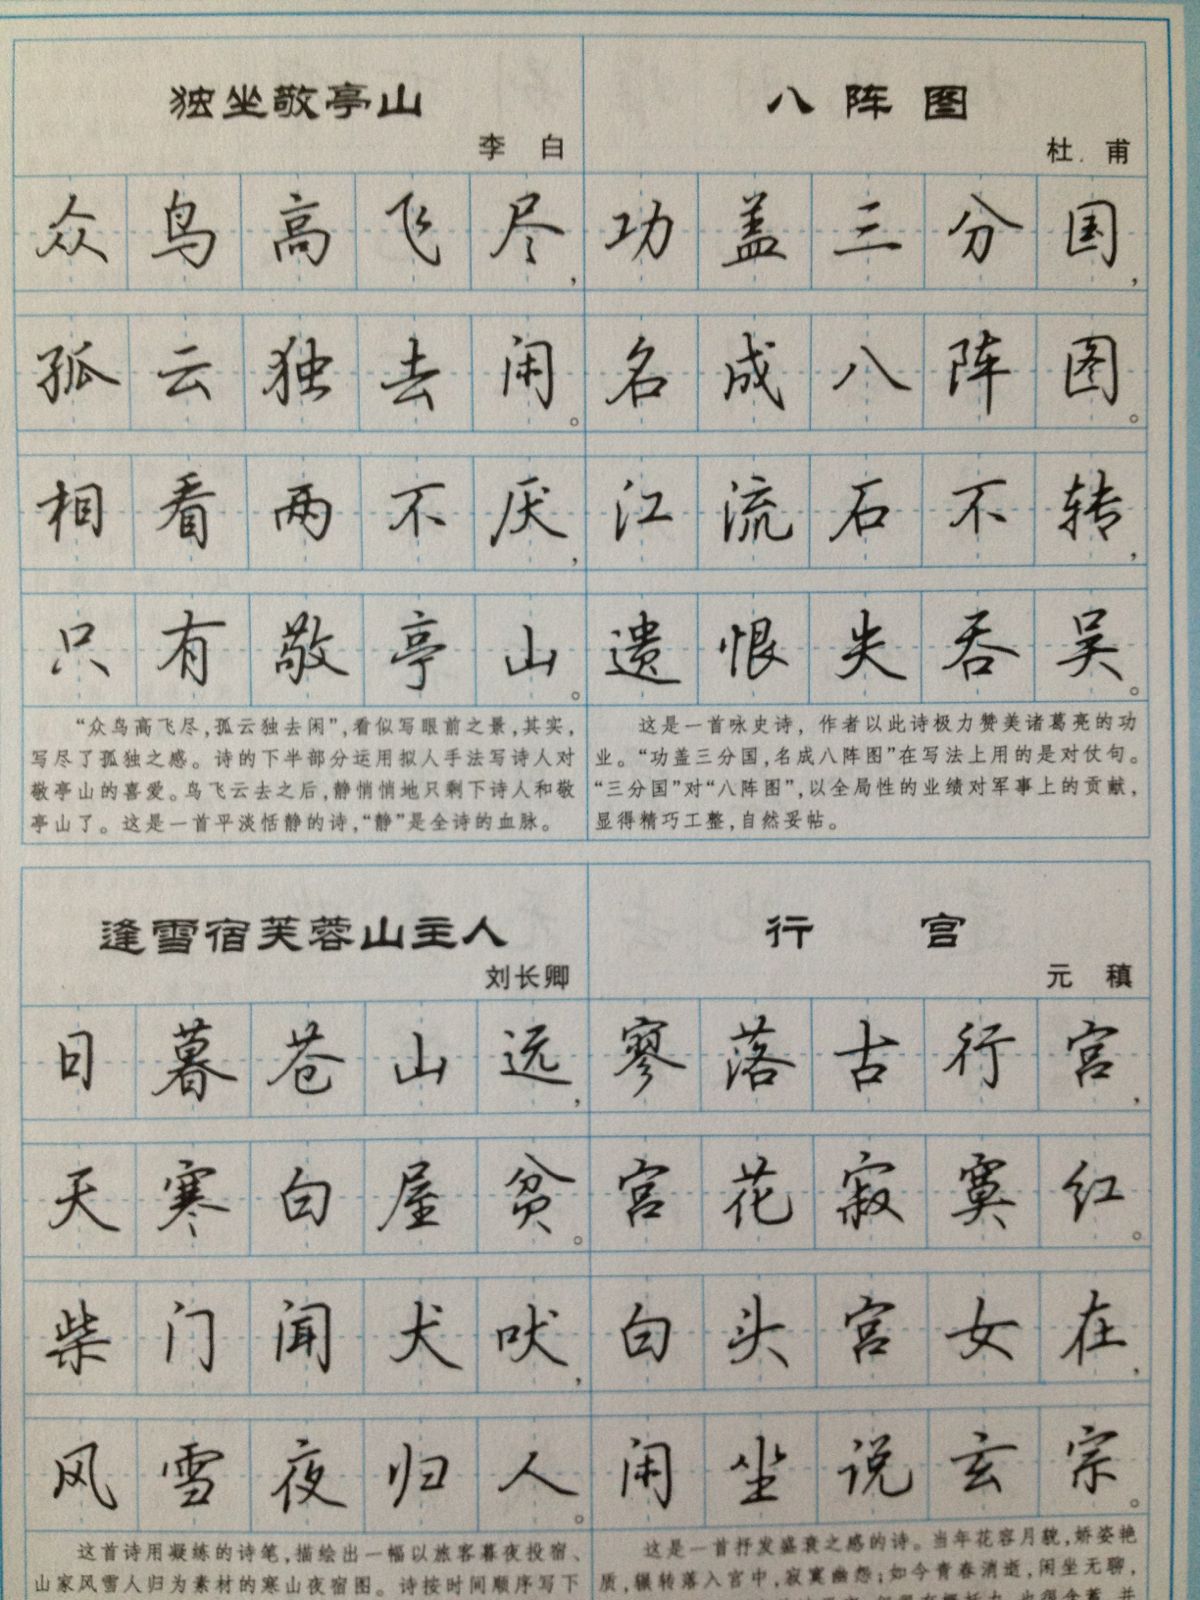 独坐敬亭山
李 白
众鸟高飞尽，
孤云独去闲。
相看两不厌，
只有敬亭山。
“众鸟高飞尽，孤云独去闲”，看似写眼前之景，其实，
写尽了孤独之感。诗的下半部分运用拟人手法写诗人对
敬亭山的喜爱。鸟飞云去之后，静悄悄地只剩下诗人和敬
亭山了。这是一首平淡恬静的诗，“静”是全诗的血脉。
八阵图
杜 甫
功盖三分国，
名成八阵图。
江流石不转，
遗恨失吞吴。
这是一首咏史诗，作者以此诗极力赞美诸葛亮的功
业。“功盖三分国，名成八阵图”在写法上用的是对仗句。
“三分国”对“八阵图”，以全局性的业绩对军事上的贡献，
显得精巧工整，自然妥帖。
逢雪宿芙蓉山主人
刘长卿
日暮苍山远，
天寒白屋贫。
柴门闻犬吠，
风雪夜归人。
这首诗用凝练的诗笔，描绘出一幅以旅客暮夜投宿、
山家风雪人归为素材的寒山夜宿图。诗按时间顺序写下
行 宫
元 稹
寥落古行宫，
宫花寂寞红。
白头宫女在，
闲坐说玄宗。
这是一首抒发盛衰之感的诗。当年花容月貌，娇姿艳
质，辗转落入宫中，寂寞幽怨；如今青春消逝，闲坐无聊，